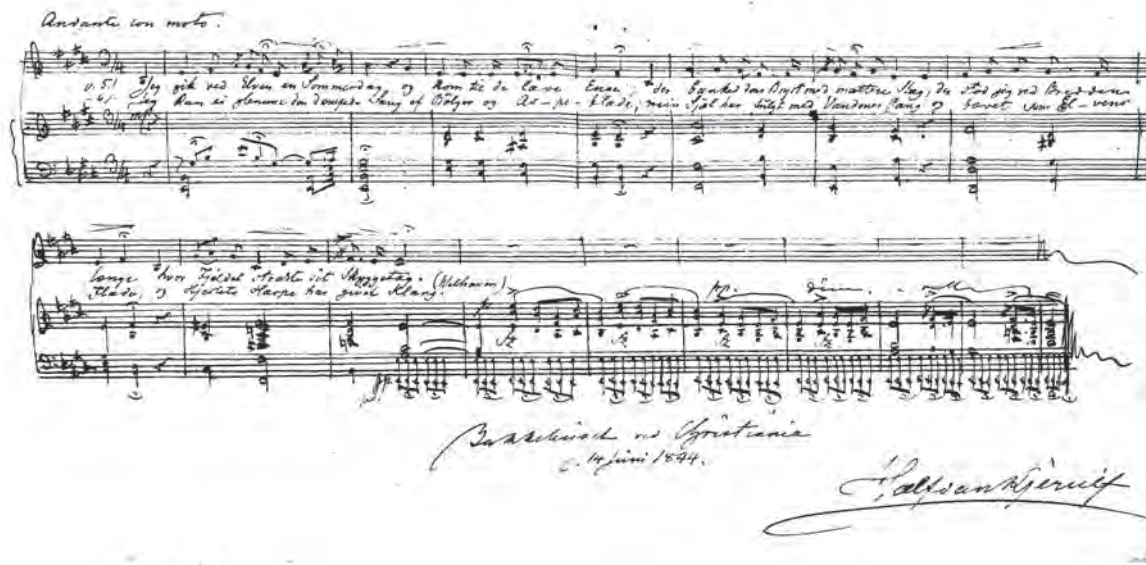 Andante con moto.
Jeg gik ved Elven en Sommerdag og kom til de lave Enge, der mod mattere Slag, da stod jeg ved Bredden
Jeg kan ei glemme den dempede Sang af Bølger og As-pe-blade, min Sjæl har fulgt med Vandenes Gang og bævet som El-vens
mfz
længe hvor Fjeldet strakte sit Skyggetag. (Welhaven)
Flade, og Hjertets Harpe har givet Klang.
pp. dim.
pp
ved Christiania
d. 14 juni 1844.
Halfdan Kjerulf